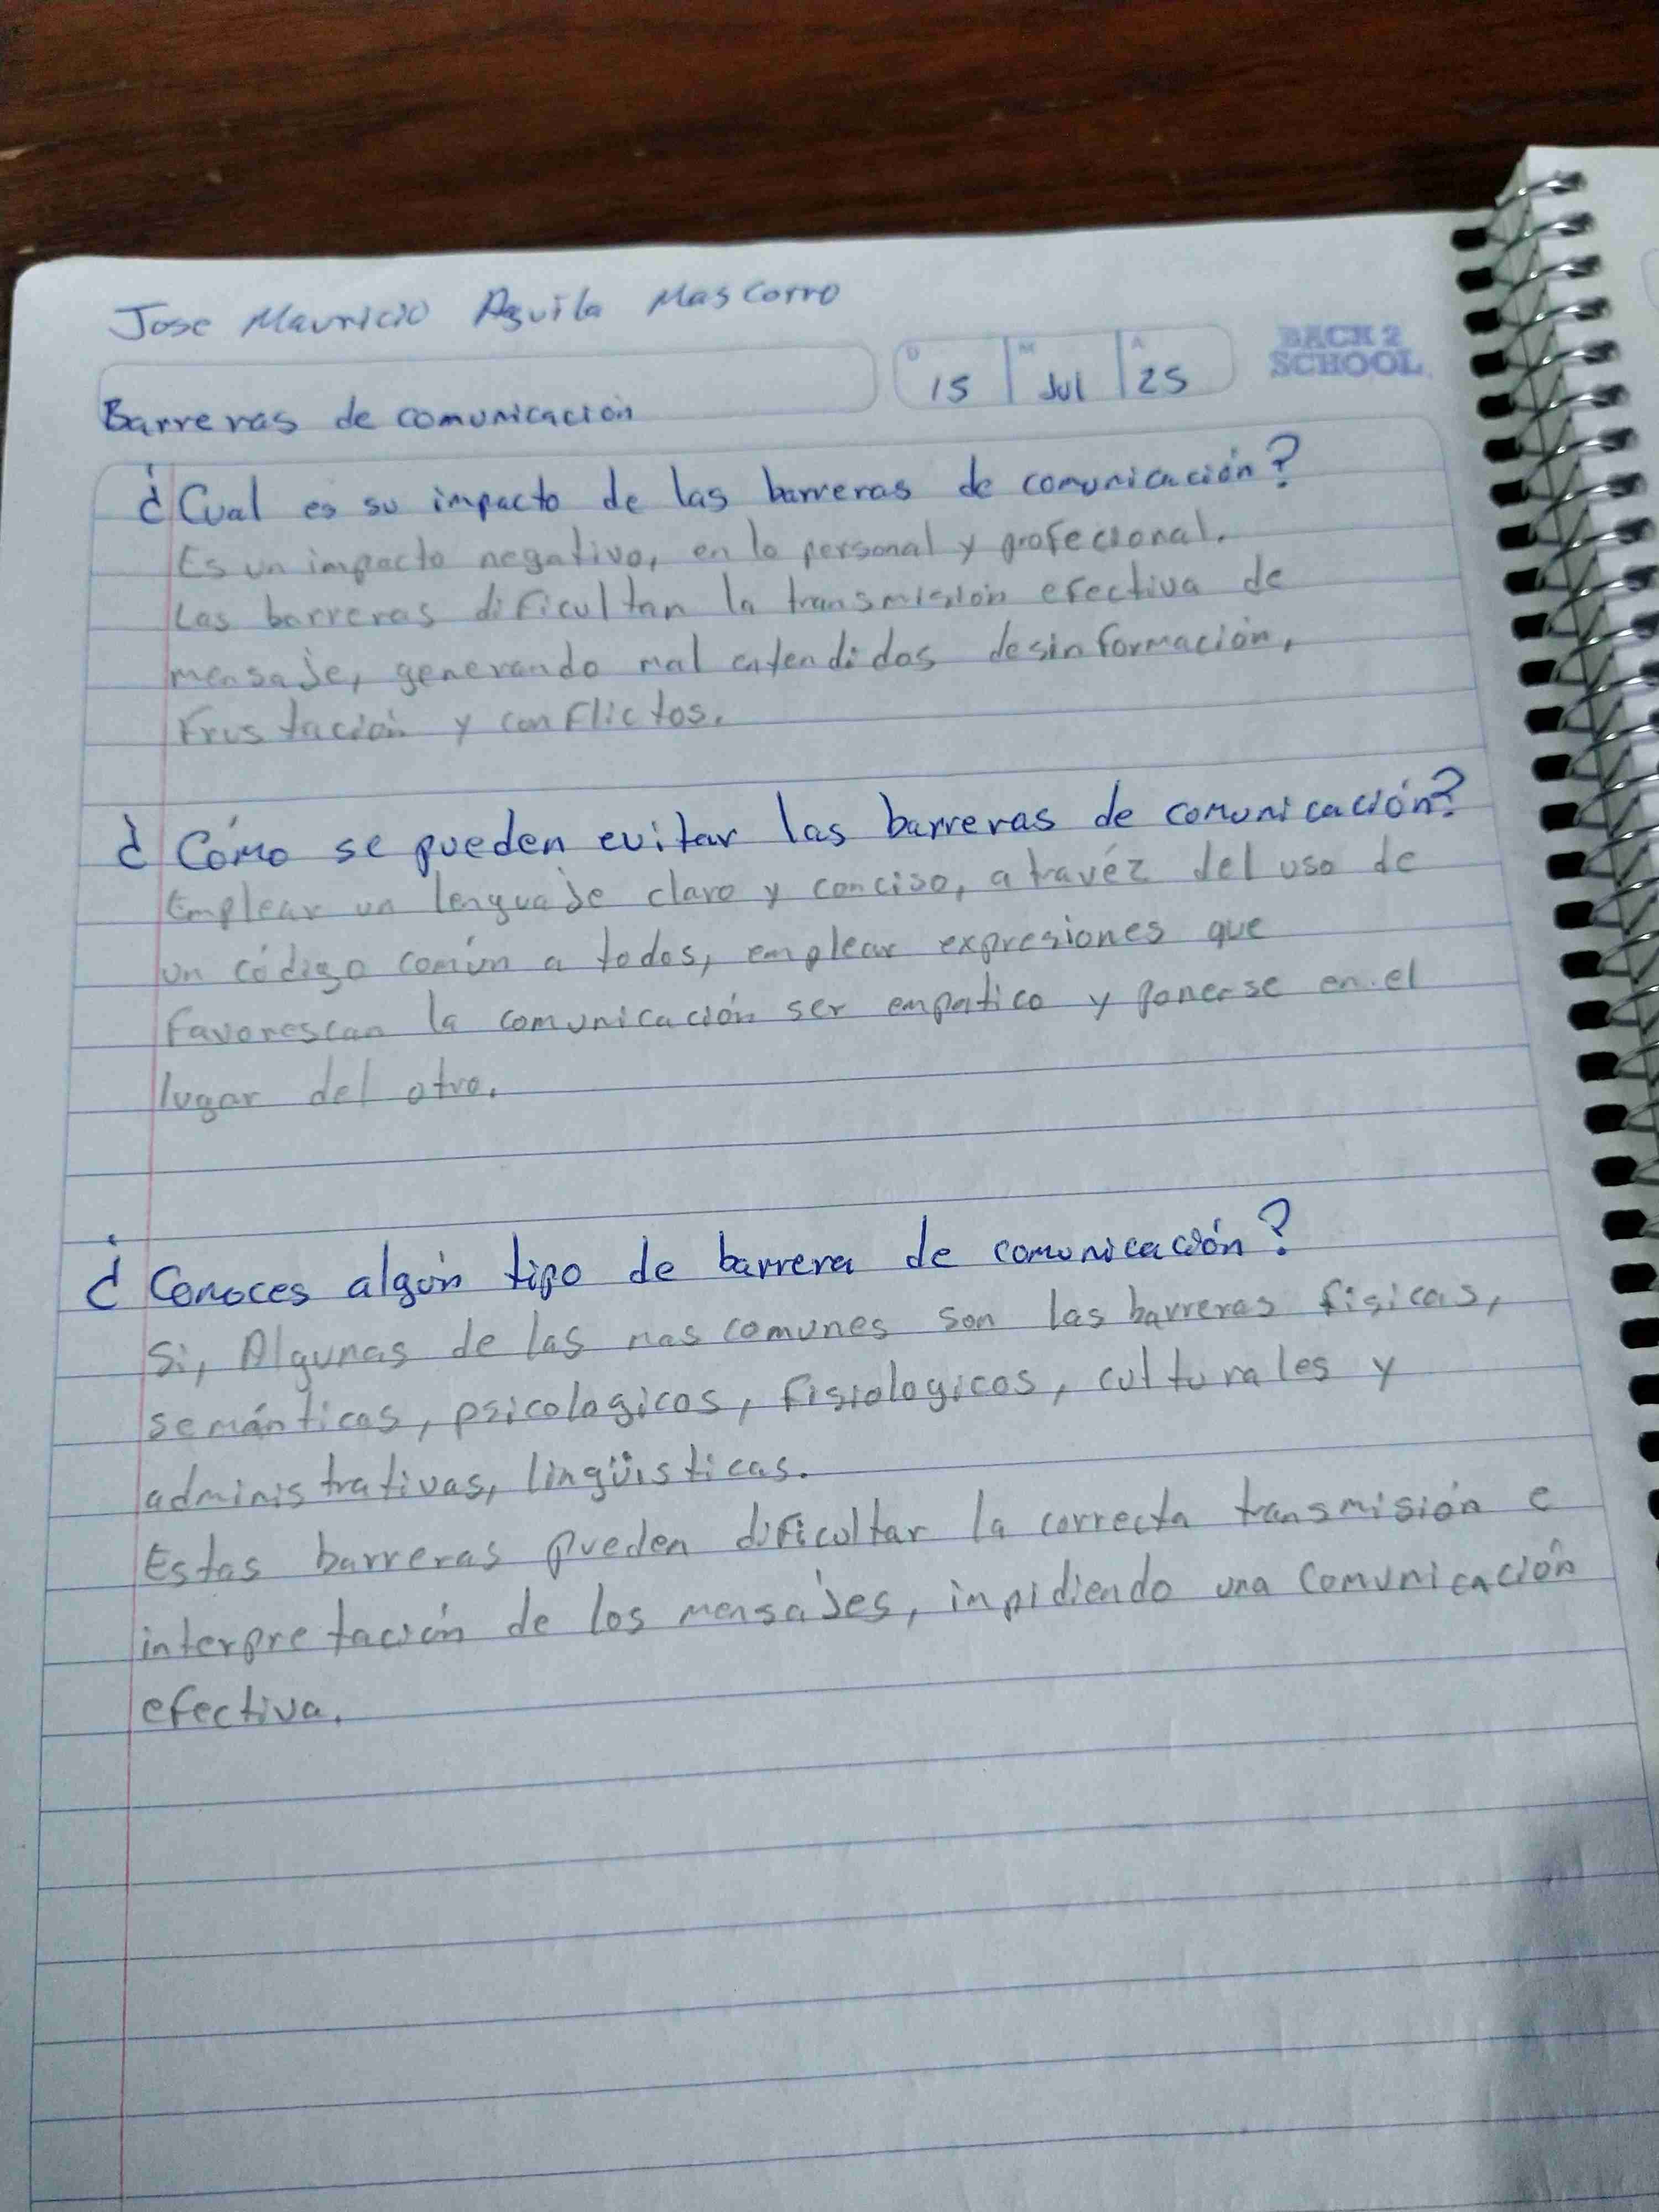 Jose Mauricio Aguila Mascorro
BACK 2
SCHOOL
D 15 M Jul A 25
Barreras de comunicación
¿Cual es su impacto de las barreras de comunicación?
Es un impacto negativo, en lo personal y profecional.
Las barreras dificultan la transmisión efectiva de
mensaje, generando mal entendidos desinformación,
frustación y conflictos.
¿Cómo se pueden evitar las barreras de comunicación?
Emplear un lenguaje claro y conciso, a travéz del uso de
un código común a todos, emplear expresiones que
favorescan la comunicación ser empatico y ponerse en el
lugar del otro.
¿Conoces algún tipo de barrera de comunicación?
Si, Algunas de las mas comunes son las barreras fisicas,
semánticas, psicologicos, fisiologicos, culturales y
administrativas, lingüisticas.
Estas barreras pueden dificultar la correcta transmisión e
interpretación de los mensajes, inpidiendo una comunicación
efectiva.